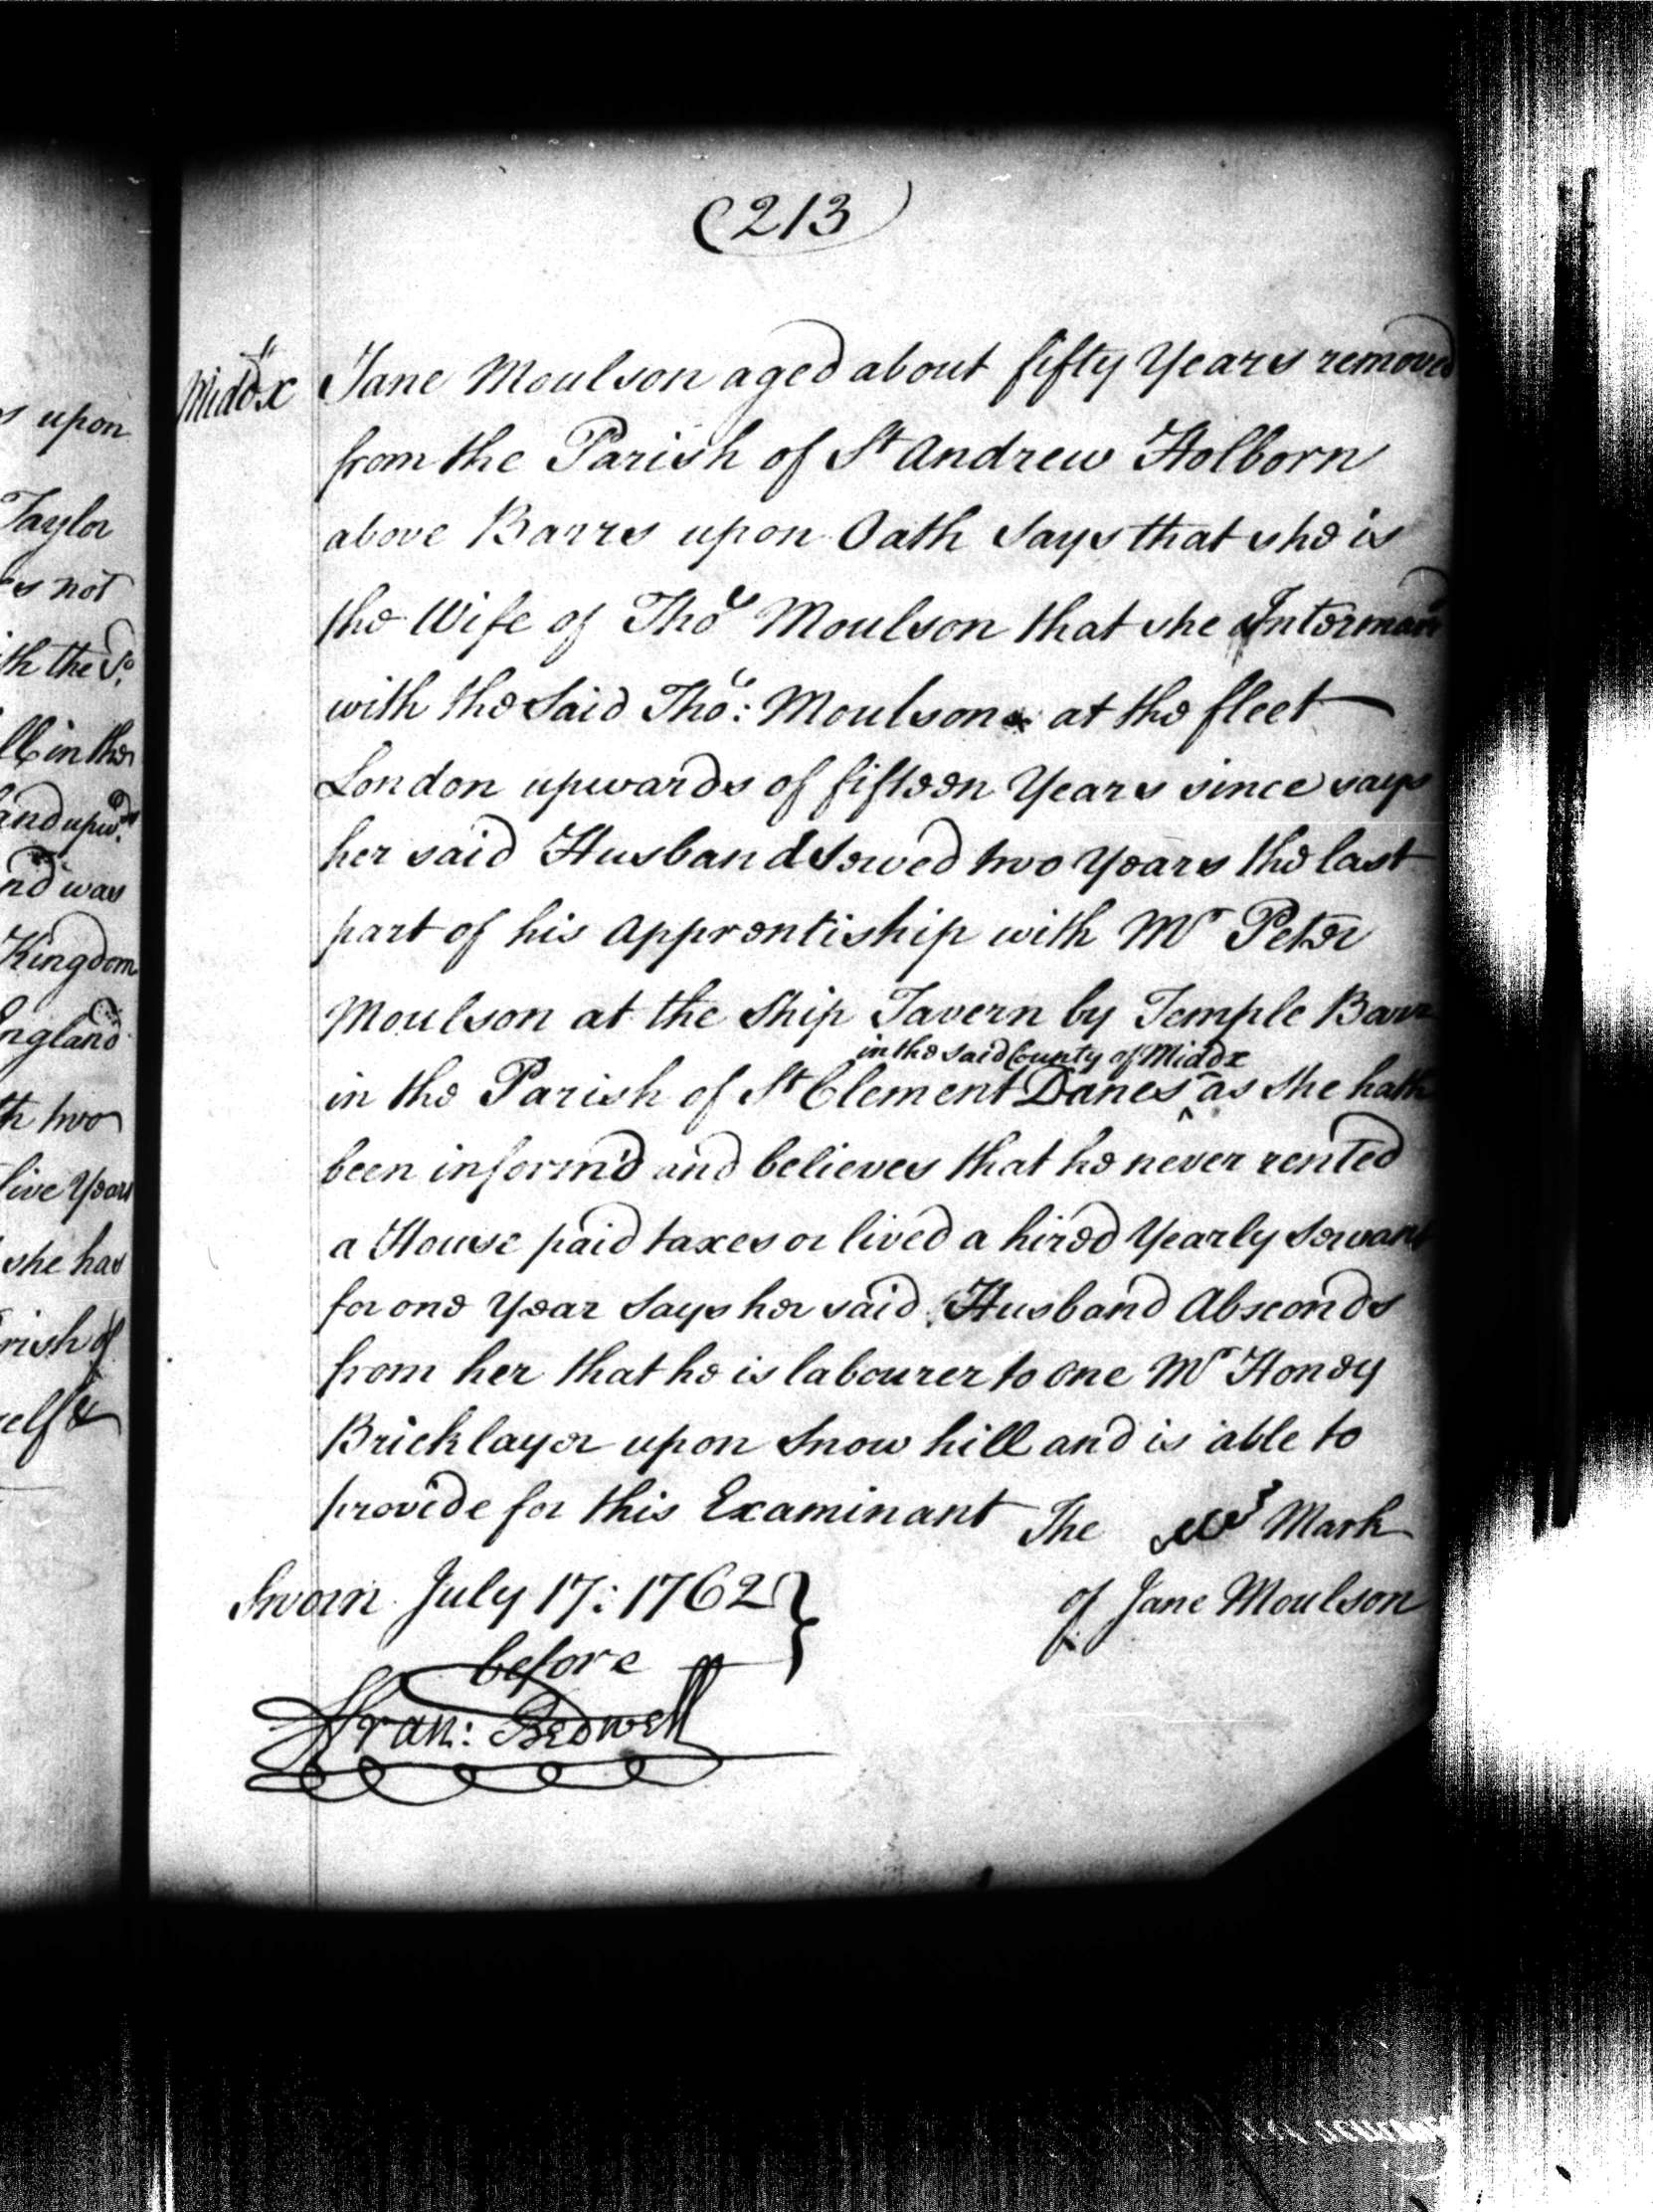 (213)
Middx Jane Moulson aged about fifty Years removed
from the Parish of St Andrew Holborn
above Barrs upon Oath Says that she is
the Wife of Thos Moulson that she Intermarr
with the Said Thos: Moulson at the fleet
London upwards of fifteen Years since says
her said Husband Served two Years the last
part of his Apprentiship with Mr Peter
Moulson at the Ship Tavern by Temple Barr
in the said County of Middx
in the Parish of St Clement Danes ^ as She hath
been inform'd and believes that he never rented
a House paid taxes or lived a hired Yearly Servant
for one Year Says her said Husband Absconds
from her that he is labourer to one Mr Honey
Bricklayer upon Snow hill and is able to
provide for this Examinant The Mark
of Jane Moulson
Sworn July 17: 1762
before
Fran: Bedwell
s upon
Taylor
es not
th the Sd.
ll in the
and upwds
nd was
Kingdom
England
th two
five Years
she has
rish of
elf &